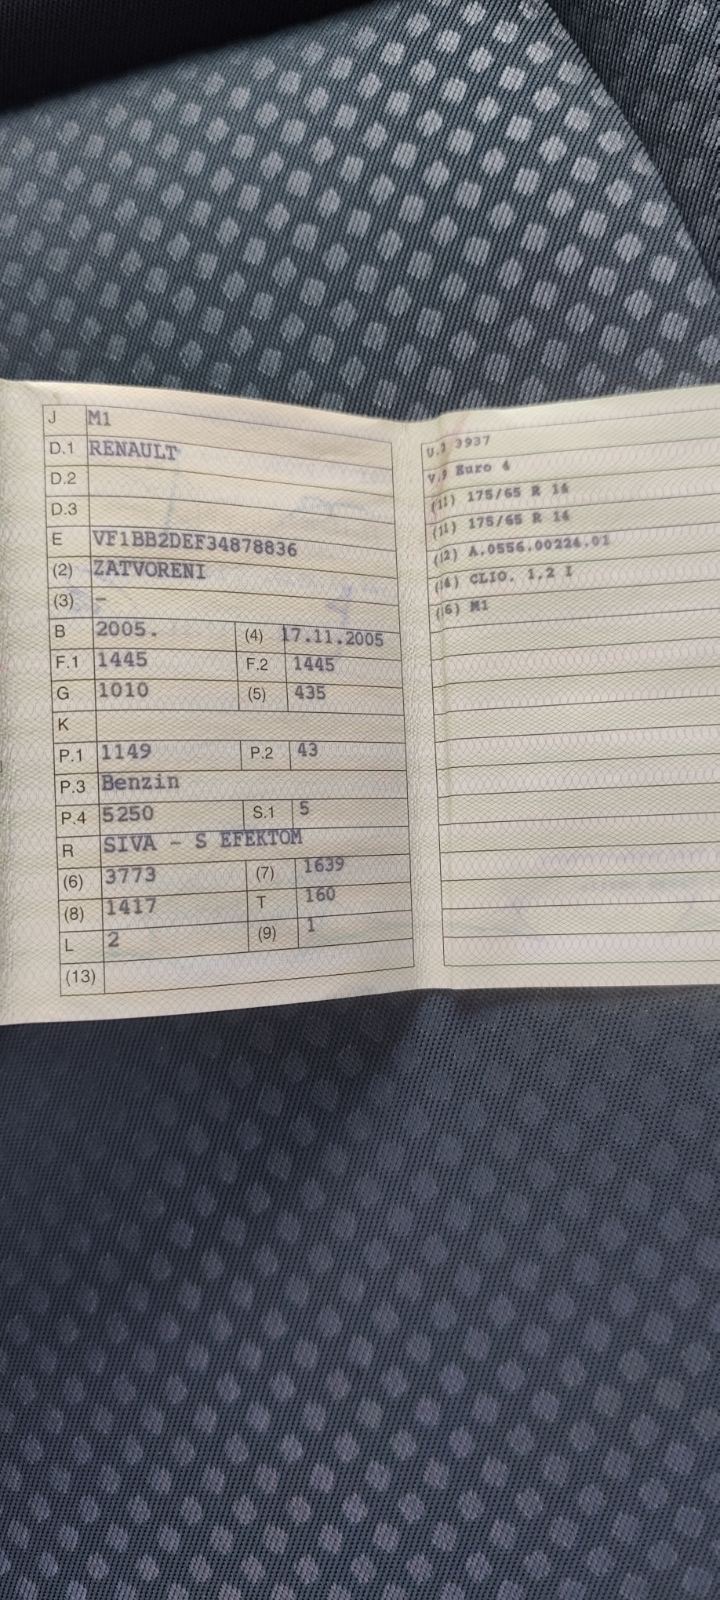 J M1
D.1 RENAULT
D.2
D.3
E VF1BB2DEF34878836
(2) ZATVORENI
(3) –
B 2005. (4) 17.11.2005
F.1 1445 F.2 1445
G 1010 (5) 435
K
P.1 1149 P.2 43
P.3 Benzin
P.4 5250 S.1 5
R SIVA – S EFEKTOM
(6) 3773 (7) 1639
(8) 1417 T 160
L 2 (9) 1
(13)
3937
V.9 Euro 4
(11) 175/65 R 14
(11) 175/65 R 14
(12) A.0556.00224.01
CLIO. 1,2 I
(16) M1